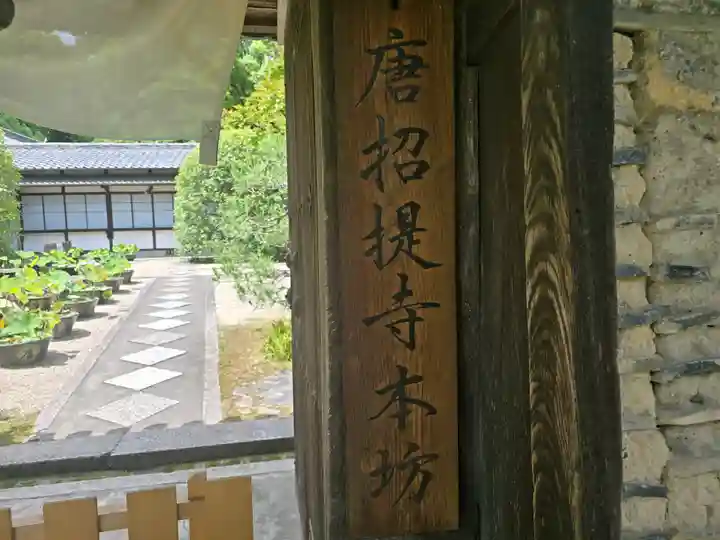 唐招提寺本坊